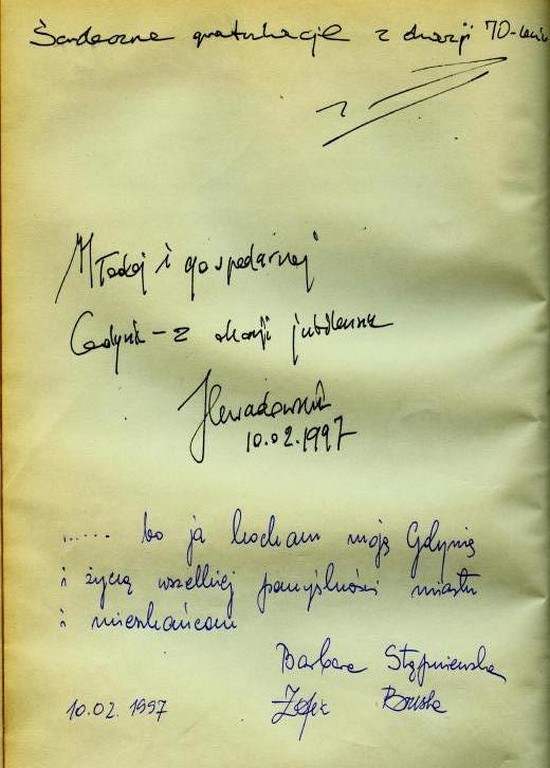 Serdeczne gratulacje z okazji 70-lecia
Młodej i gospodarnej
Gdyni - z okazji jubileuszu
10.02.1997
...... bo ja kocham moją Gdynię
i życzę wszelkiej pomyślności miastu
i mieszkańcom
Barbara Stępniewska
10.02.1997